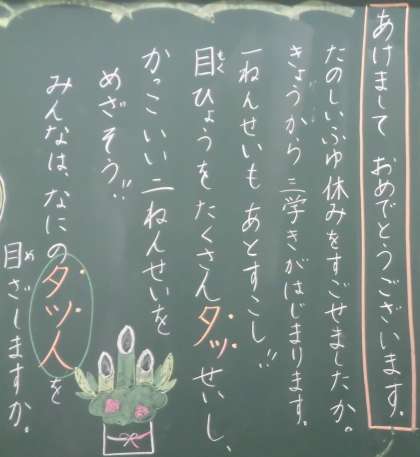 あけまして おめでとうございます。
たのしいふゆ休みをすごせましたか。
きょうから 三学きがはじまります。
一ねんせいも あとすこし!!
目ひょうを たくさん タッせいし、
かっこいい 二ねんせいを
めざそう!!
みんなは、なにの タツ人を
目ざしますか。